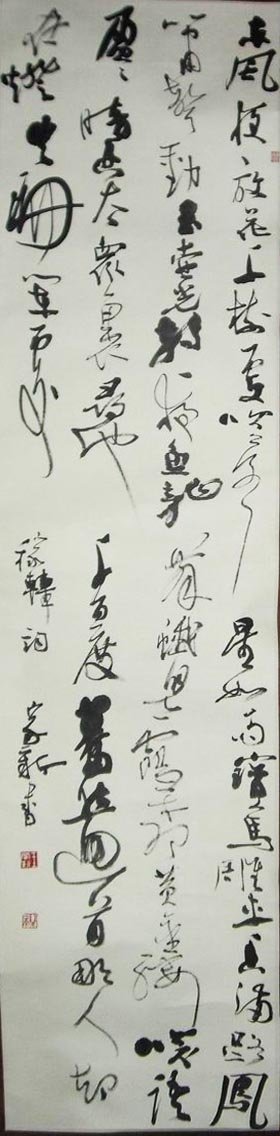 東風夜放花千樹更吹落星如雨寶馬雕車香滿路鳳
簫聲動玉壺光轉一夜魚龍舞蛾兒雪柳黃金縷笑語
盈盈暗香去眾裏尋他千百度驀然回首那人卻
在燈火珊闌處
稼軒詞
家新書